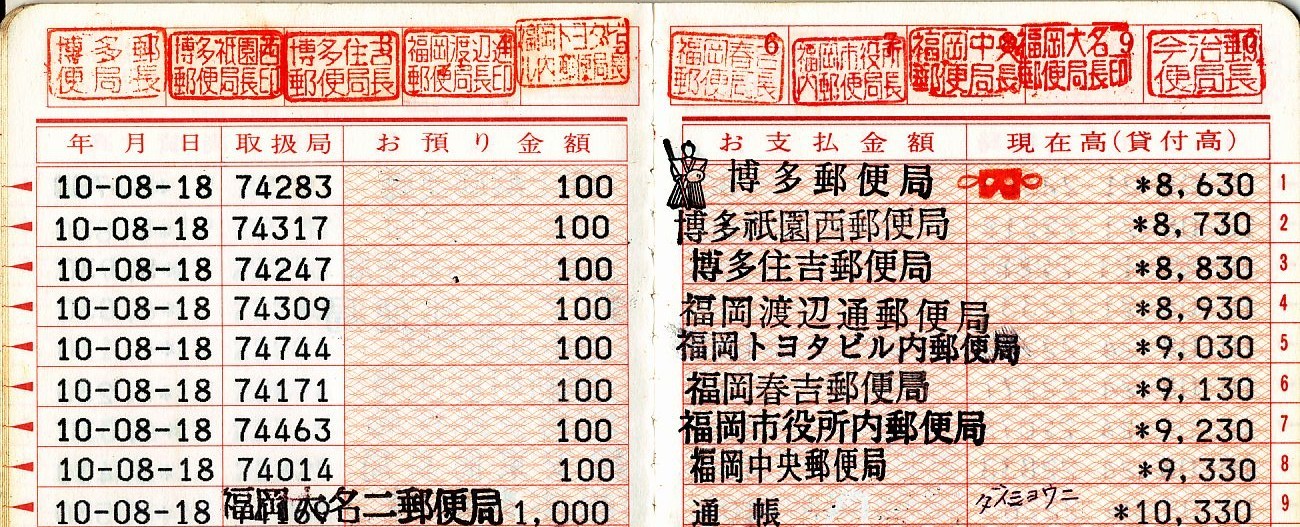 博多郵便局長 1
博多祇園西郵便局長印
博多住吉郵便局長 3
福岡渡辺通郵便局長印 4
福岡トヨタビル内郵便局長 5
福岡春吉郵便局長 6
福岡市役所内郵便局長 7
福岡中央郵便局長 8
福岡大名二郵便局長印 9
今治郵便局長 10
年月日 取扱局 お預り金額 お支払金額 現在高(貸付高)
10-08-18 74283 100 博多郵便局 *8,630 1
10-08-18 74317 100 博多祇園西郵便局 *8,730 2
10-08-18 74247 100 博多住吉郵便局 *8,830 3
10-08-18 74309 100 福岡渡辺通郵便局 *8,930 4
10-08-18 74744 100 福岡トヨタビル内郵便局 *9,030 5
10-08-18 74171 100 福岡春吉郵便局 *9,130 6
10-08-18 74463 100 福岡市役所内郵便局 *9,230 7
10-08-18 74014 100 福岡中央郵便局 *9,330 8
10-08-18 福岡大名二郵便局 1,000 通帳 ダイミョウニ *10,330 9